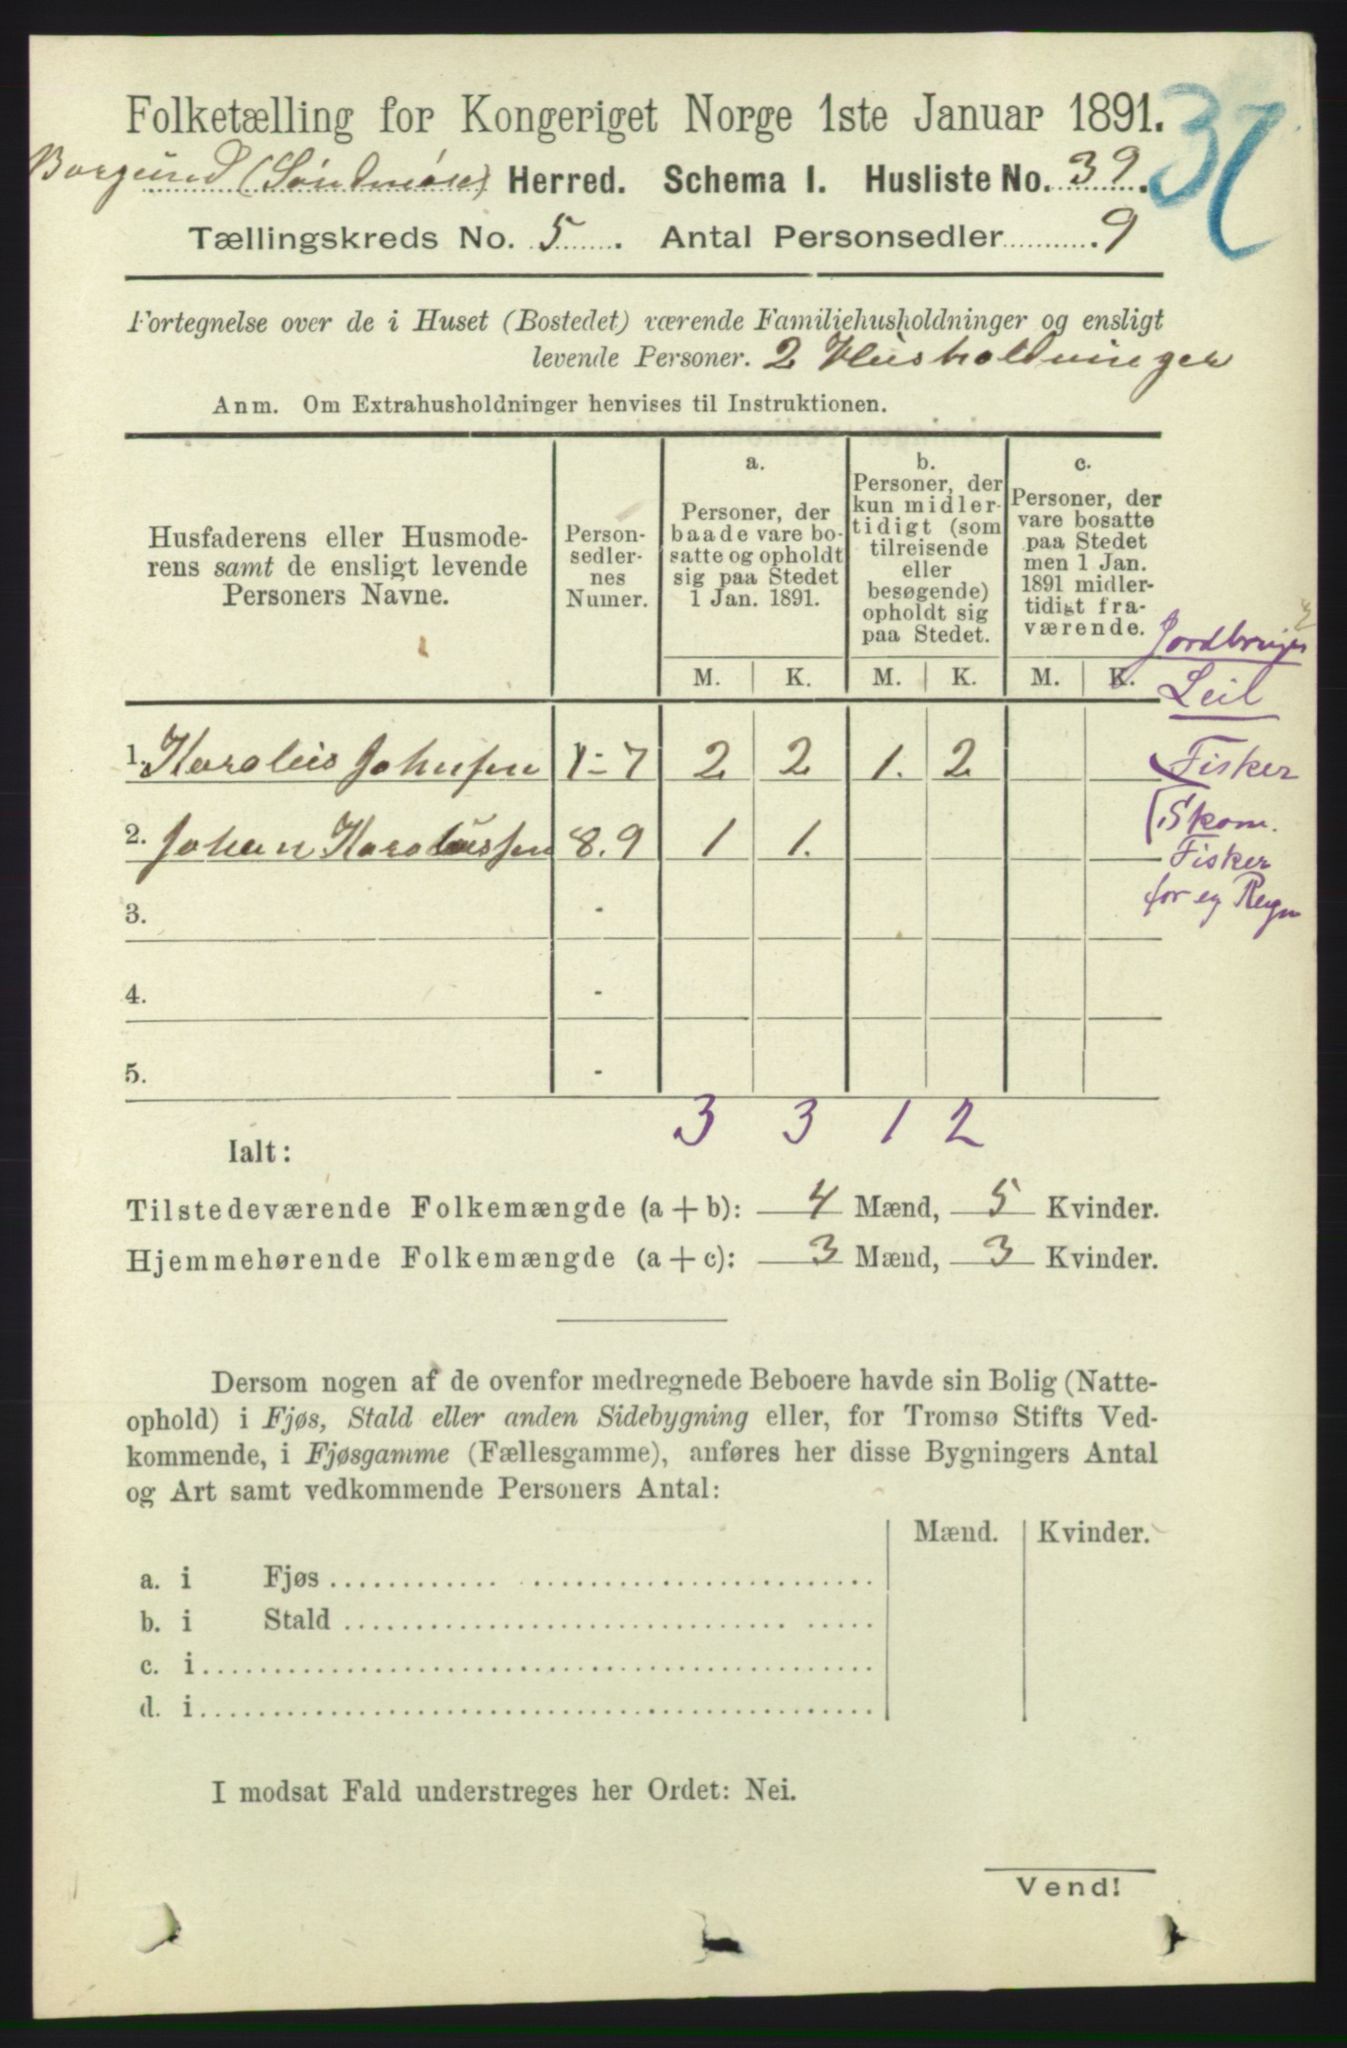 Folketælling for Kongeriget Norge 1ste Januar 1891.
Borgund (Søndmøre) Herred. Schema I. Husliste No. 39.
Tællingskreds No. 5. Antal Personsedler 9
Fortegnelse over de i Huset (Bostedet) værende Familiehusholdninger og ensligt
levende Personer. 2 Husholdninger
Anm. Om Extrahusholdninger henvises til Instruktionen.
Husfaderens eller Husmode-
rens samt de ensligt levende
Personers Navne.
Person-
sedler-
nes
Numer.
a.
Personer, der
baade vare bo-
satte og opholdt
sig paa Stedet
1 Jan. 1891.
b.
Personer, der
kun midler-
tidigt (som
tilreisende
eller
besøgende)
opholdt sig
paa Stedet.
c.
Personer, der
vare bosatte
paa Stedet
men 1 Jan.
1891 midler-
tidigt fra-
værende.
M. K. M. K. M. K.
Jordbruger
Leil
1. Karolius Johnsen 1-7 2 2 1. 2 Fisker
2. Johan Karolussen 8.9 1 1. Skom.
Fisker
for eg Regn
3. -
4. -
5. -
3 3 1 2
Ialt:
Tilstedeværende Folkemængde (a + b): 4 Mænd, 5 Kvinder.
Hjemmehørende Folkemængde (a + c): 3 Mænd, 3 Kvinder.
Dersom nogen af de ovenfor medregnede Beboere havde sin Bolig (Natte-
ophold) i Fjøs, Stald eller anden Sidebygning eller, for Tromsø Stifts Ved-
kommende, i Fjøsgamme (Fællesgamme), anføres her disse Bygningers Antal
og Art samt vedkommende Personers Antal:
Mænd. Kvinder.
a. i Fjøs
b. i Stald
c. i
d. i
I modsat Fald understreges her Ordet: Nei.
Vend!